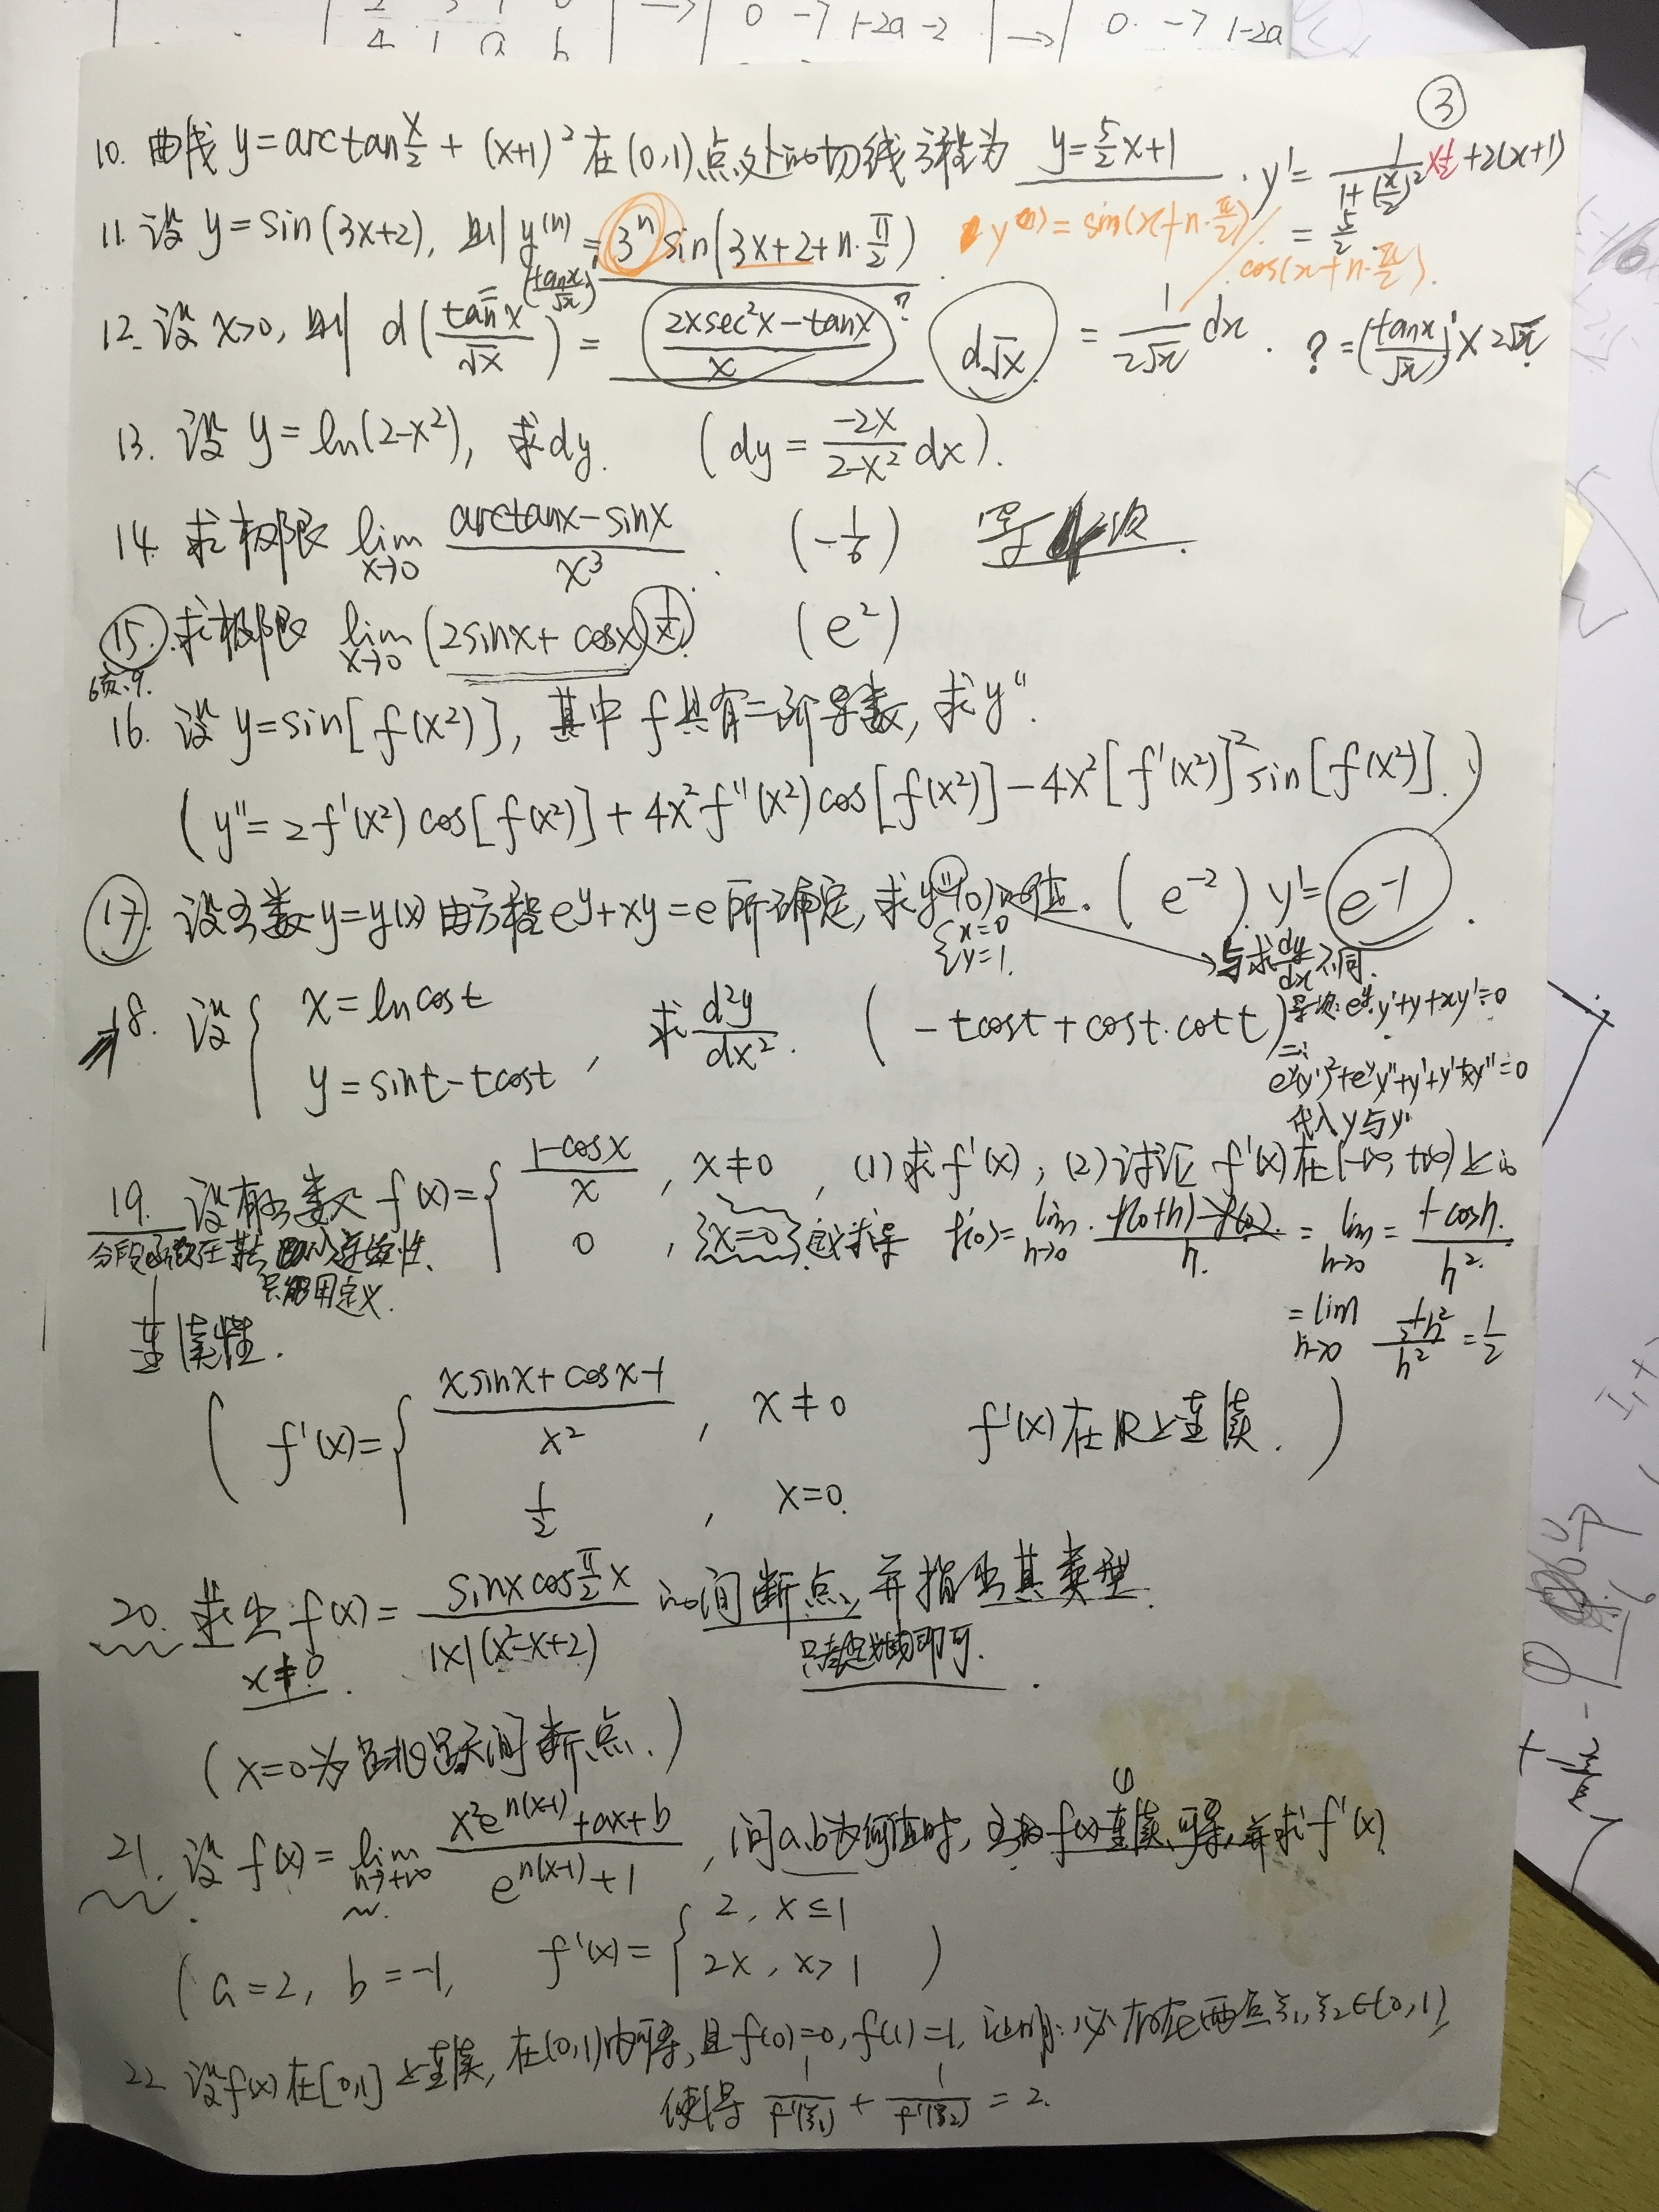 4 1 a b
0 -7 1-2a -2
0 -7 1-2a
③
10. 曲线 y=arctan x/2 + (x+1)² 在(0,1)点处的切线方程为 y=5/2x+1 . y'= 1/(1+(x/2)²) ×1/2 +2(x+1)
= 5/2
11. 设 y=sin(3x+2), 则 y⁽ⁿ⁾ = 3ⁿ sin(3x+2+n·π/2) . y⁽ⁿ⁾ = sin(x+n·π/2) / cos(x+n·π/2).
12. 设 x>0, 则 d(tanx/√x) = (2xsec²x-tanx)/x d√x = 1/(2√x) dx . ?=(tanx/√x)'×2√x
13. 设 y=ln(2-x²), 求dy. (dy= -2x/(2-x²) dx).
14. 求极限 lim x→0 (arctanx-sinx)/x³ . (-1/6)
15. 求极限 lim x→0 (2sinx+cosx)^(1/x). (e²)
16. 设 y=sin[f(x²)], 其中 f具有二阶导数, 求y''.
(y''=2f'(x²)cos[f(x²)]+4x²f''(x²)cos[f(x²)]-4x²[f'(x²)]²sin[f(x²)].)
17. 设函数y=y(x)由方程e^y+xy=e所确定, 求y''(0)的值. (e⁻²) y'=e⁻¹
{x=0 y=1.
与求dy/dx不同.
18. 设 { x=lncost y=sint-tcost , 求 d²y/dx². (-tcost+cost·cott)
e^y·y'+y+xy'=0
e^y(y')²+e^y y''+y'+y'+xy''=0
代入y与y'
19. 设有函数 f(x)={ (1-cosx)/x , x≠0 , (1)求f'(x); (2)讨论 f'(x)在(-∞,+∞)上的
0 , x=0 定义求导 f'(0)=lim h→0 (f(0+h)-f(0))/h = lim h→0 = (1-cosh)/h²
只能用定义.
连续性.
=lim h→0 (1/2h²)/h² = 1/2
(f'(x)={ (xsinx+cosx-1)/x² , x≠0 f'(x)在R上连续.)
1/2 , x=0.
20. 求出 f(x)= (sinxcos π/2 x)/(|x|(x²-x+2)) 的间断点, 并指出其类型.
x≠0.
(x=0为跳跃间断点.)
21. 设 f(x)= lim n→+∞ (x²e^(n(x-1))+ax+b)/(e^(n(x-1))+1) , 问a,b为何值时, 函数f(x)连续、可导, 并求f'(x)
(a=2, b=-1, f'(x)={ 2, x≤1 2x, x>1 )
22. 设f(x)在[0,1]上连续, 在(0,1)内可导, 且f(0)=0, f(1)=1, 证明: 必存在两点ξ₁,ξ₂∈(0,1),
使得 1/f'(ξ₁) + 1/f'(ξ₂) = 2.